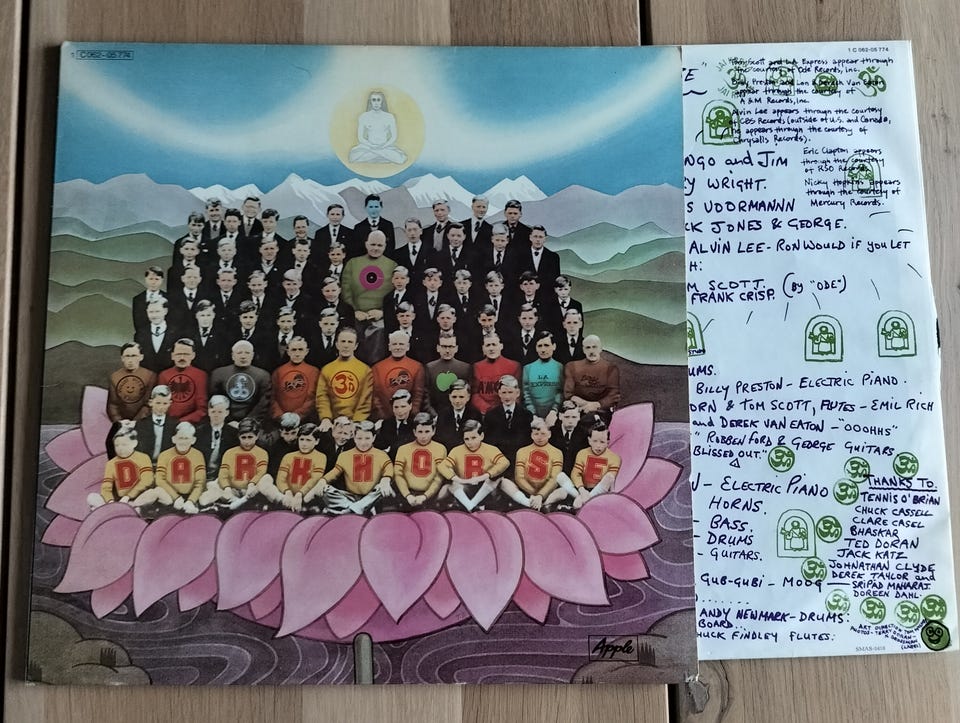 1 C 062-05 774
DARK HORSE
LA EXPRESS
Apple
1 C 062-05 774
Tom Scott and L.A. Express appear through
the courtesy of Ode Records, Inc.
Billy Preston and Lon & Derek Van Eaton
appear through the courtesy of
A & M Records, Inc.
Alvin Lee appears through the courtesy
of CBS Records (outside of U.S. and Canada,
he appears through the courtesy of
Chrysalis Records).
Eric Clapton appears
through the courtesy
of RSO Records
Nicky Hopkins appears
through the courtesy of
Mercury Records.
E"
NGO and JIM
Y WRIGHT.
S VOORMANNN
CK JONES & GEORGE.
ALVIN LEE - RON WOULD IF YOU LET
H:
M SCOTT. (BY "ODE")
FRANK CRISP.
UMS.
BILLY PRESTON - ELECTRIC PIANO.
ORN & TOM SCOTT, FLUTES - EMIL RICH
and DEREK VAN EATON - "OOOHHS"
"ROBBEN FORD & GEORGE GUITARS
BLISSED OUT."
- ELECTRIC PIANO
HORNS.
- BASS.
- DRUMS
- GUITARS.
GUB-GUBI - MOOG
ANDY NEWMARK - DRUMS:
BOARD...
HUCK FINDLEY FLUTES.
THANKS TO.
TENNIS O'BRIAN
CHUCK CASSELL
CLARE CASEL
BHASKAR
TED DORAN
JACK KATZ
JOHNATHAN CLYDE
DEREK TAYLOR and
SRIPAD MAHARAJ.
DOREEN DAHL.
SMAS-3418